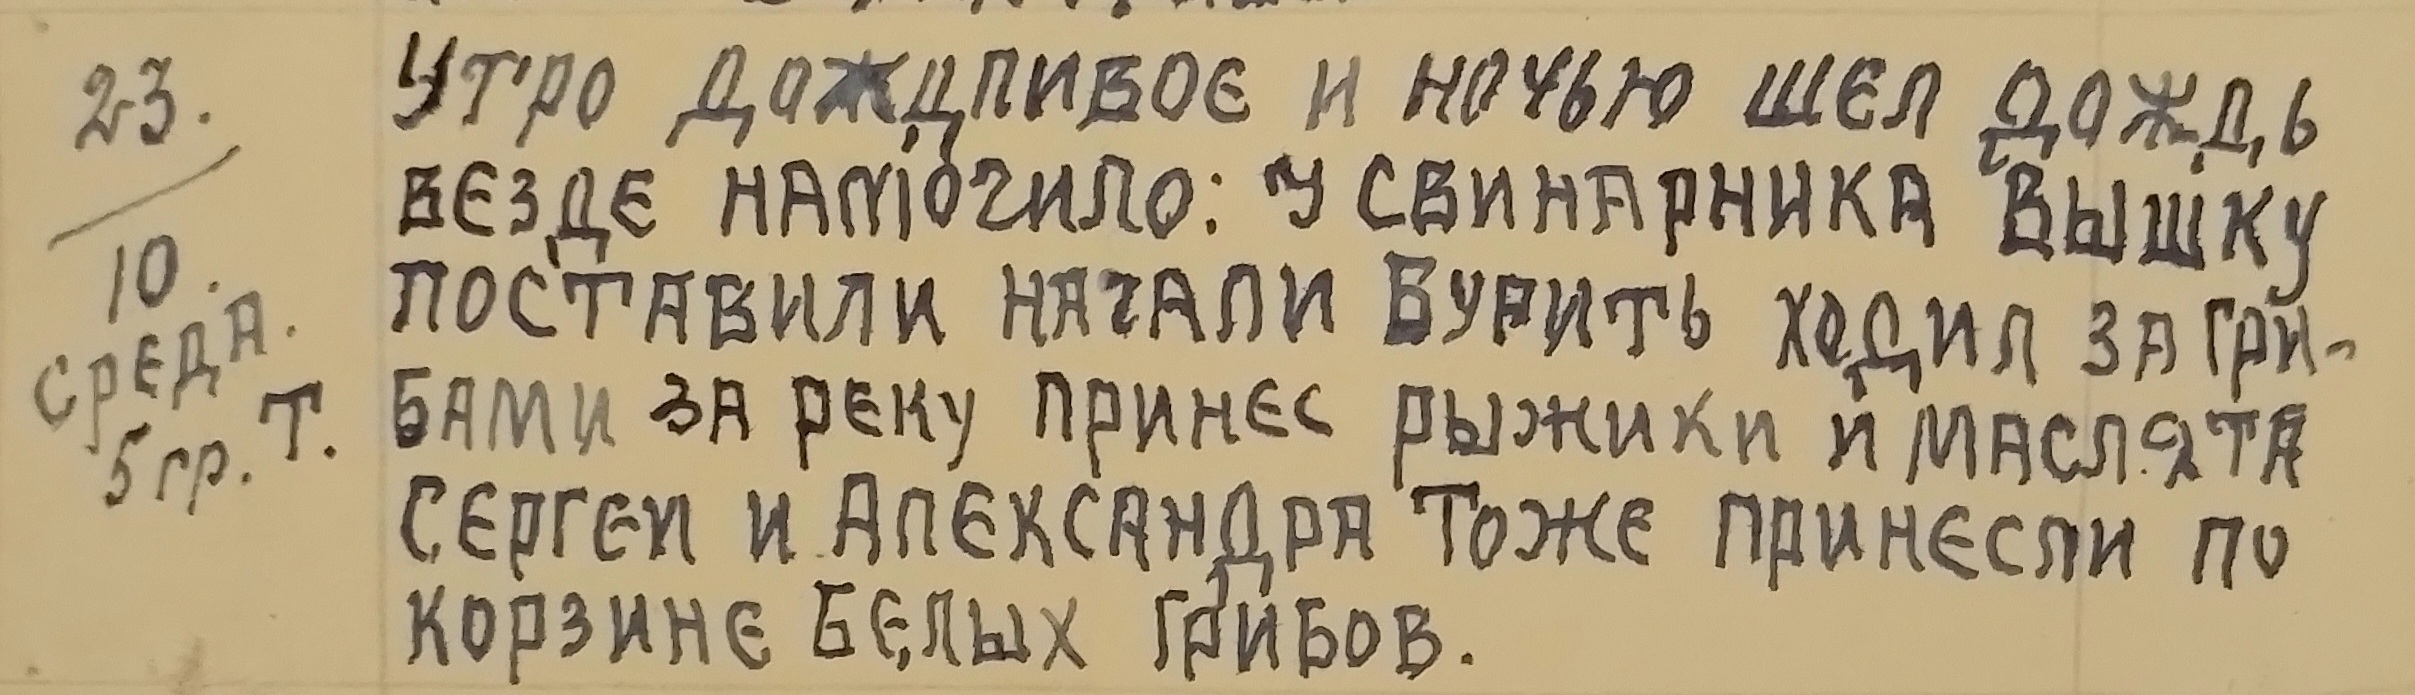 23.
10.
СРЕДА.
5 гр. Т.
УТРО ДОЖДЛИВОЕ И НОЧЬЮ ШЕЛ ДОЖДЬ
ВЕЗДЕ НАМОЧИЛО: У СВИНАРНИКА ВЫШКУ
ПОСТАВИЛИ НАЧАЛИ БУРИТЬ ХОДИЛ ЗА ГРИ-
БАМИ ЗА РЕКУ ПРИНЕС РЫЖИКИ И МАСЛЯТА
СЕРГЕИ И АЛЕКСАНДРА ТОЖЕ ПРИНЕСЛИ ПО
КОРЗИНЕ БЕЛЫХ ГРИБОВ.